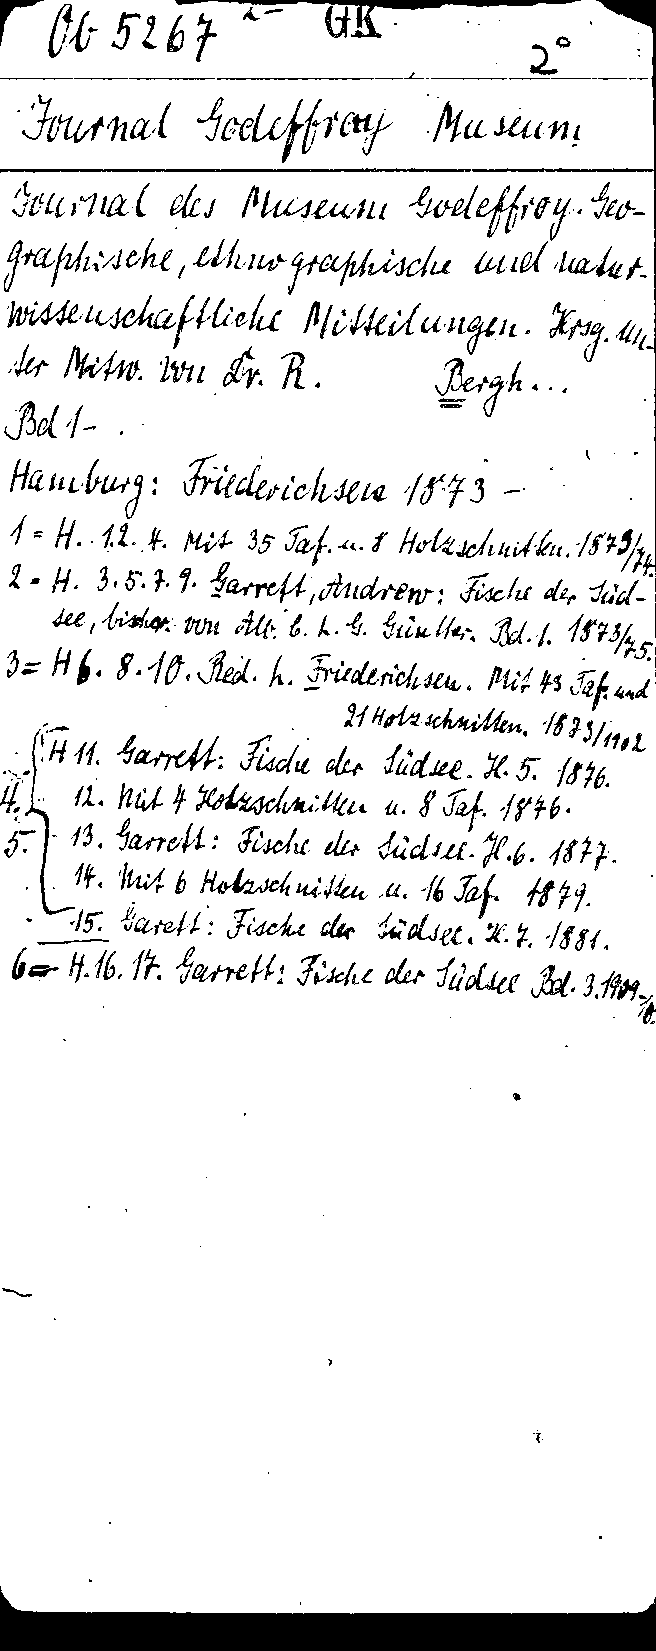 Ob 5267 GK
2°
Journal Godeffroy Museum
Journal des Museum Godeffroy. Geo-
graphische, ethnographische und natur-
wissenschaftliche Mitteilungen. Hrsg. un-
ter Mitw. von Dr. R. Bergh...
Bd 1-
Hamburg: Friederichsen 1873 -
1 = H. 1.2.4. Mit 35 Taf. u. 8 Holzschnitten. 1873/74.
2 = H. 3.5.7.9. Garrett, Andrew: Fische der Süd-
see, von Alb. C. L. G. Günther. Bd. 1. 1873/75.
3 = H 6. 8. 10. Red. L. Friederichsen. Mit 43 Taf. und
21 Holzschnitten. 1873/1902
H 11. Garrett: Fische der Südsee. H. 5. 1876.
4. 12. Mit 4 Holzschnitten u. 8 Taf. 1876.
5. 13. Garrett: Fische der Südsee. H. 6. 1877.
14. Mit 6 Holzschnitten u. 16 Taf. 1879.
15. Garett: Fische der Südsee. H. 7. 1881.
6 = H. 16. 17. Garrett: Fische der Südsee Bd. 3. 1909-10.